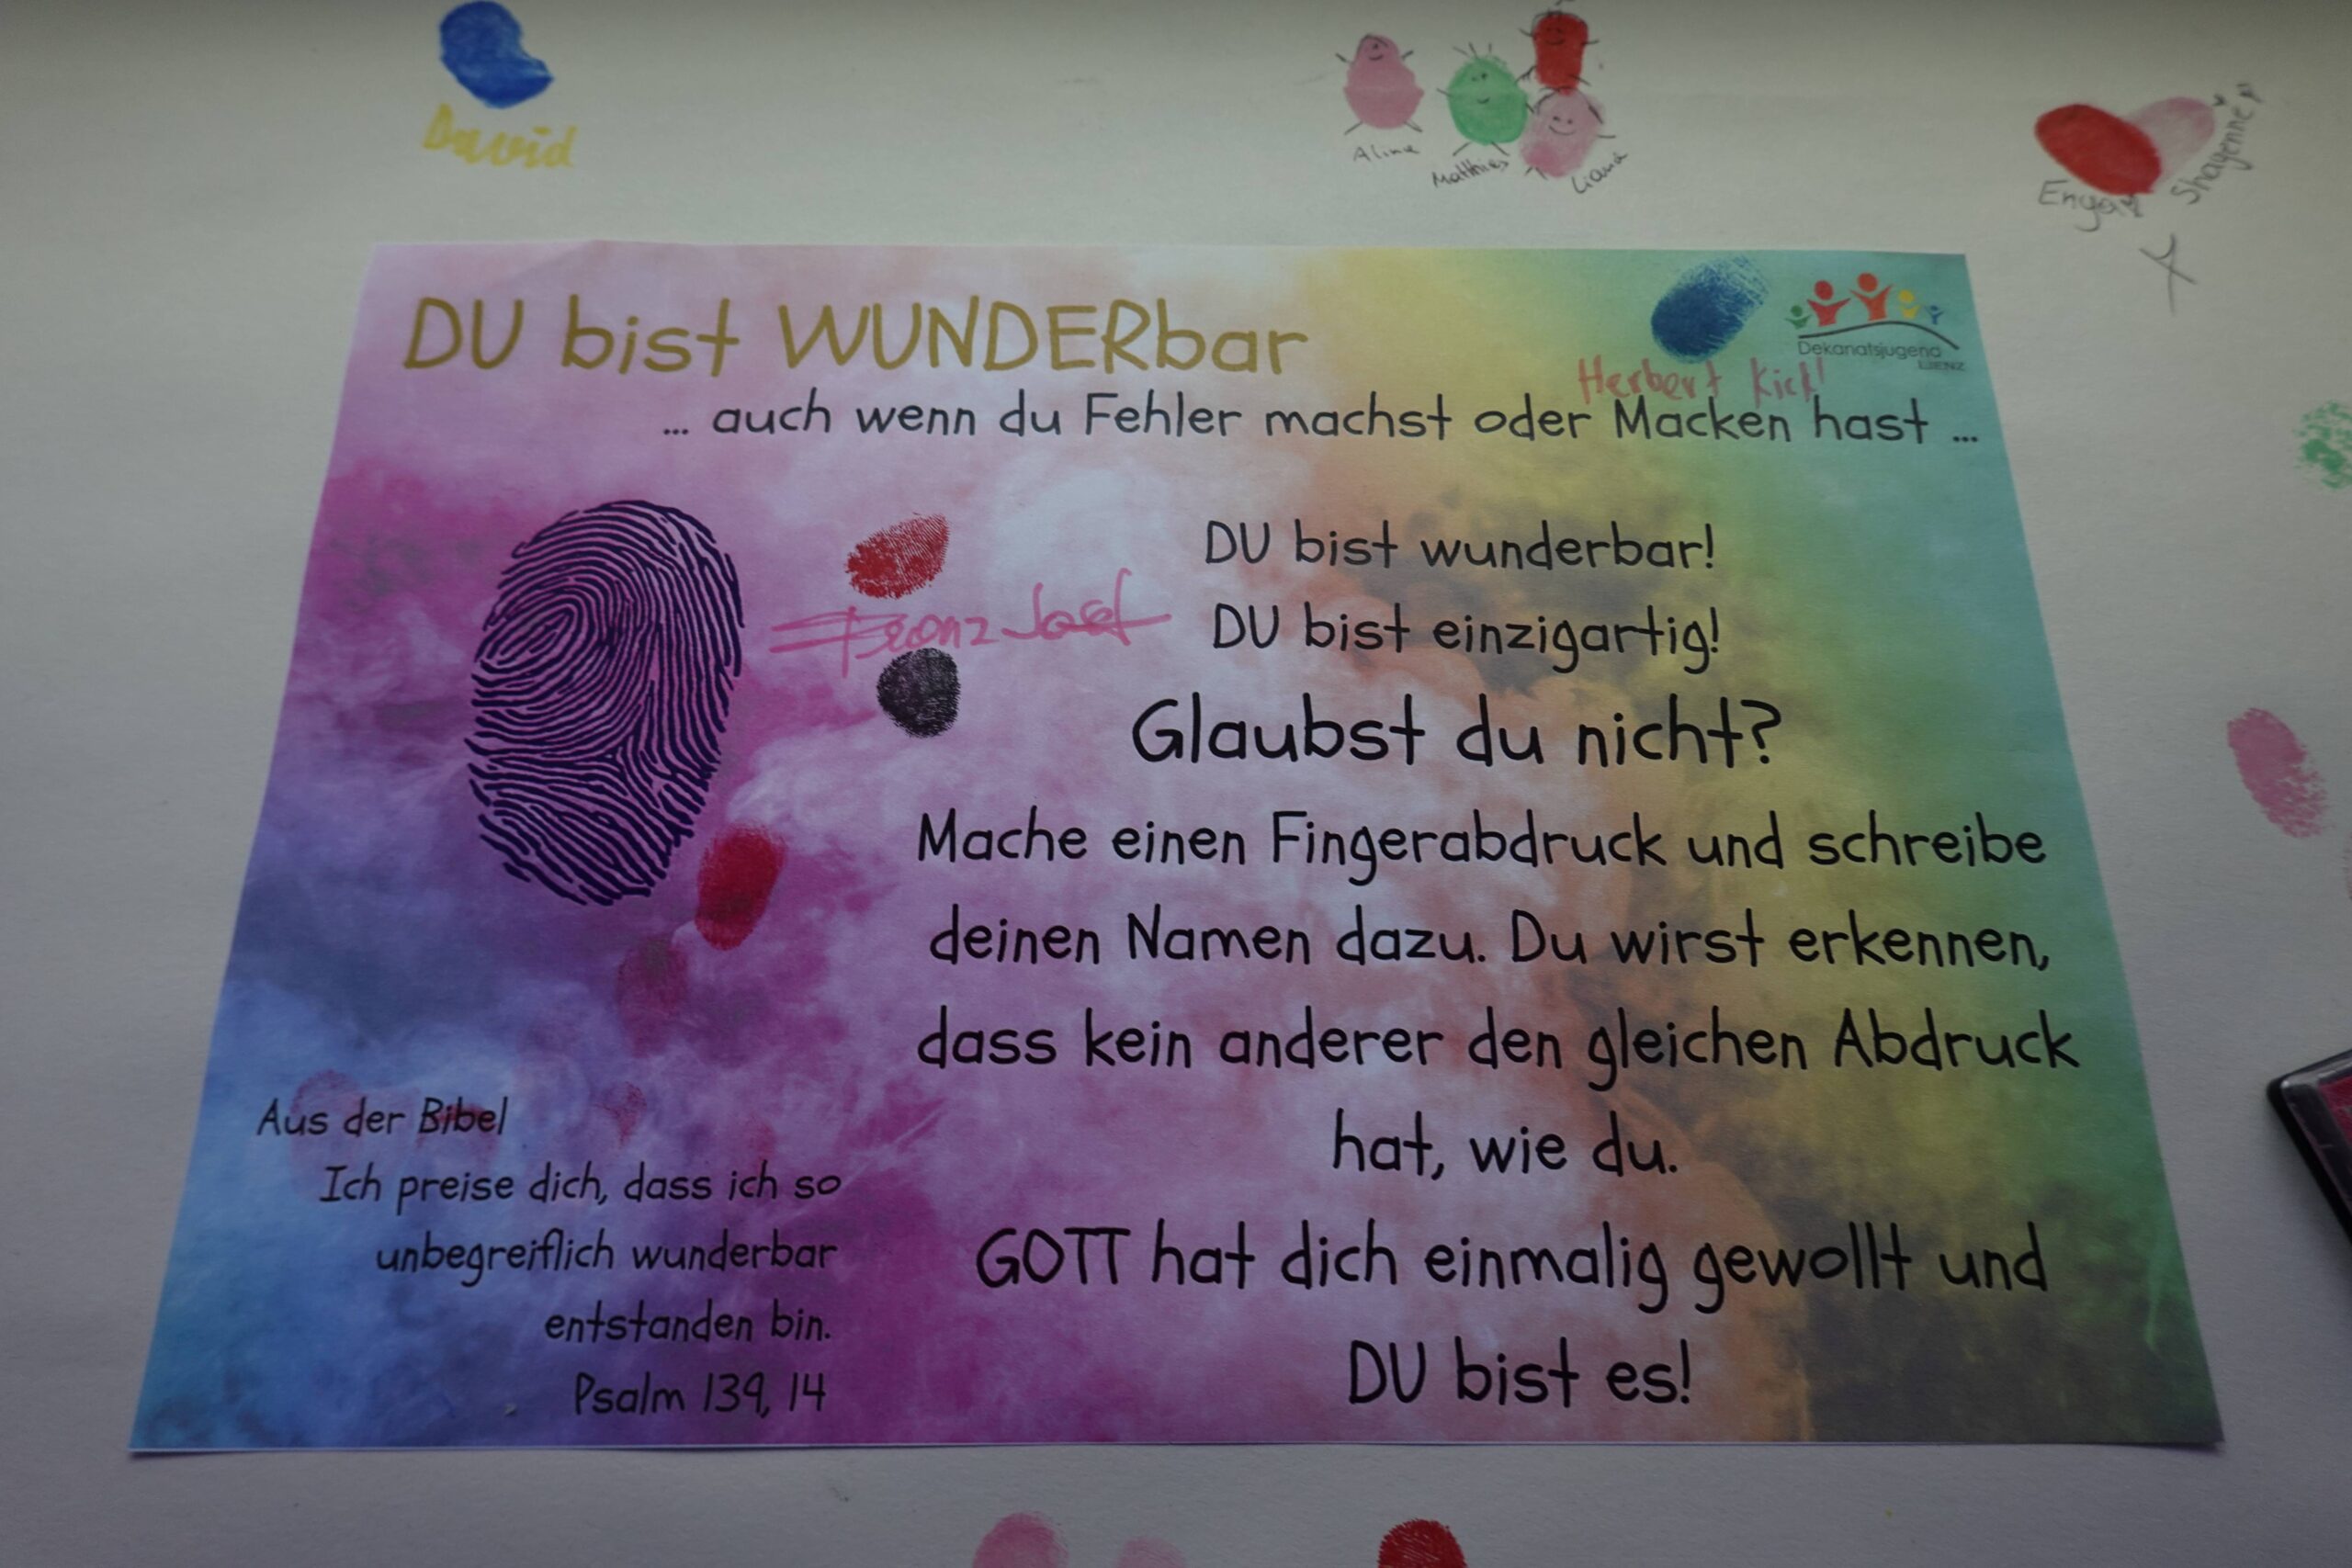 David
Alina
Matthias
Liana
DU bist WUNDERbar
Dekanatsjugend
LIENZ
Herbert Kickl
... auch wenn du Fehler machst oder Macken hast ...
DU bist wunderbar!
Franz Josef
DU bist einzigartig!
Glaubst du nicht?
Mache einen Fingerabdruck und schreibe
deinen Namen dazu. Du wirst erkennen,
dass kein anderer den gleichen Abdruck
hat, wie du.
GOTT hat dich einmalig gewollt und
DU bist es!
Aus der Bibel
Ich preise dich, dass ich so
unbegreiflich wunderbar
entstanden bin.
Psalm 139, 14